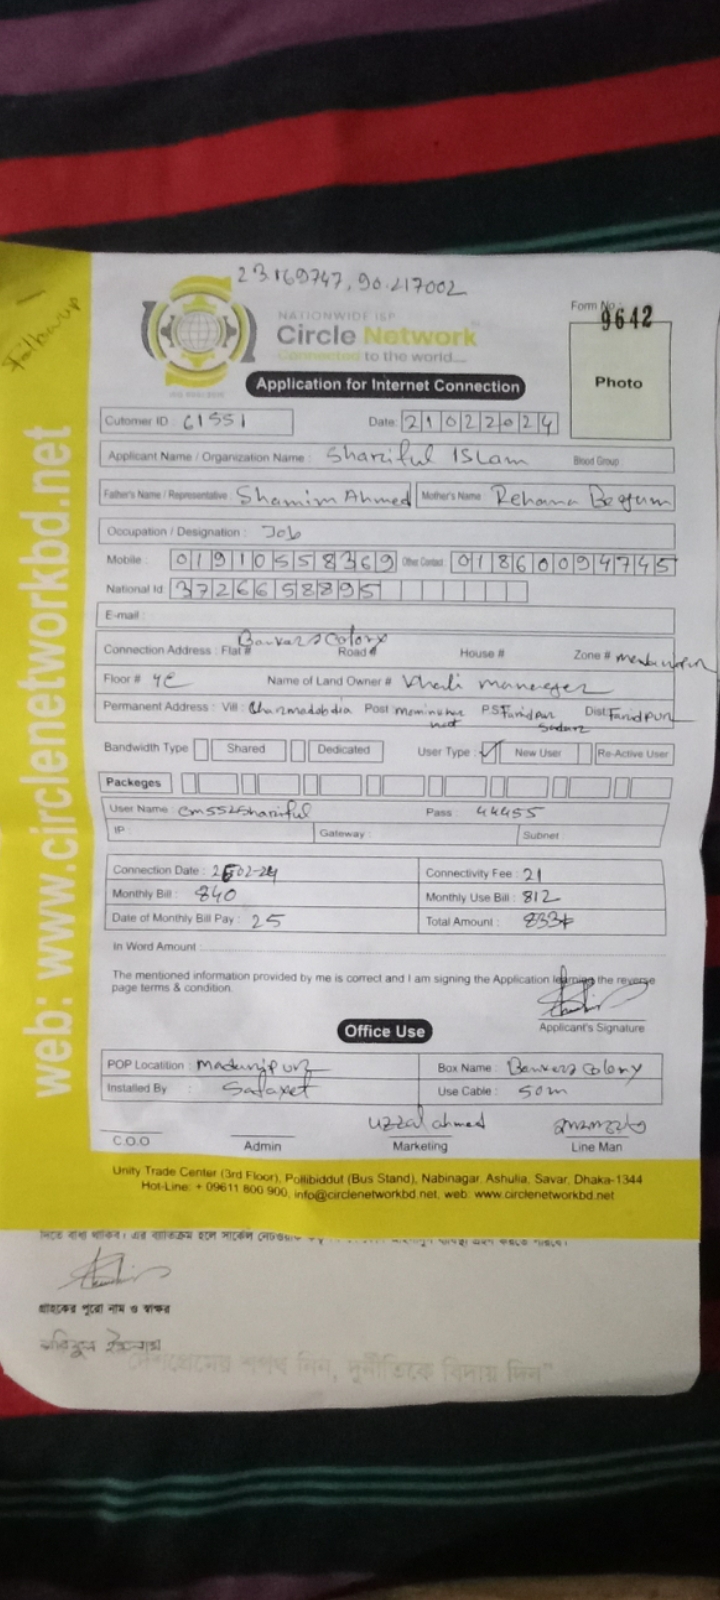 23.169747, 90.217002
Followup
NATIONWIDE ISP
Circle Network
Connected to the world....
Form No.: 9642
Photo
Application for Internet Connection
Cutomer ID : C1551 Date: 21022024
Applicant Name / Organization Name : Shariful ISLam Blood Group
Father's Name / Representative Shamim Ahmed Mother's Name : Rehana Begum
Occupation / Designation : Job
Mobile : 01910558369 Other Contact : 01860094745
National Id: 3726658895
E-mail :
Connection Address : Flat # Bankers Colony Road # House # Zone #
Floor # 4C Name of Land Owner # Khali manager
Permanent Address : Vill : Post PS Faridpur Sadar Dist Faridpur
Bandwidth Type Shared Dedicated User Type : ✓ New User Re-Active User
Packeges
User Name : cm552shariful Pass : 44455
IP : Gateway : Subnet
Connection Date : Connectivity Fee : 21
Monthly Bill : 840 Monthly Use Bill : 812
Date of Monthly Bill Pay : 25 Total Amount : 833
In Word Amount :
The mentioned information provided by me is correct and I am signing the Application learning the reverse
page terms & condition.
Applicant's Signature
Office Use
POP Locatition : Madaripur Box Name : Bankers Colony
Installed By : Safayet Use Cable : 50m
Uzzal ahmed
C.O.O Admin Marketing Line Man
Unity Trade Center (3rd Floor), Pollibiddut (Bus Stand), Nabinagar, Ashulia, Savar, Dhaka-1344
Hot-Line: + 09611 800 900, info@circlenetworkbd.net, web: www.circlenetworkbd.net
web: www.circlenetworkbd.net
গ্রাহকের পুরো নাম ও স্বাক্ষর
শরিফুল ইসলাম
দেশপ্রেমের শপথ নিন, দুর্নীতিকে বিদায় দিন"